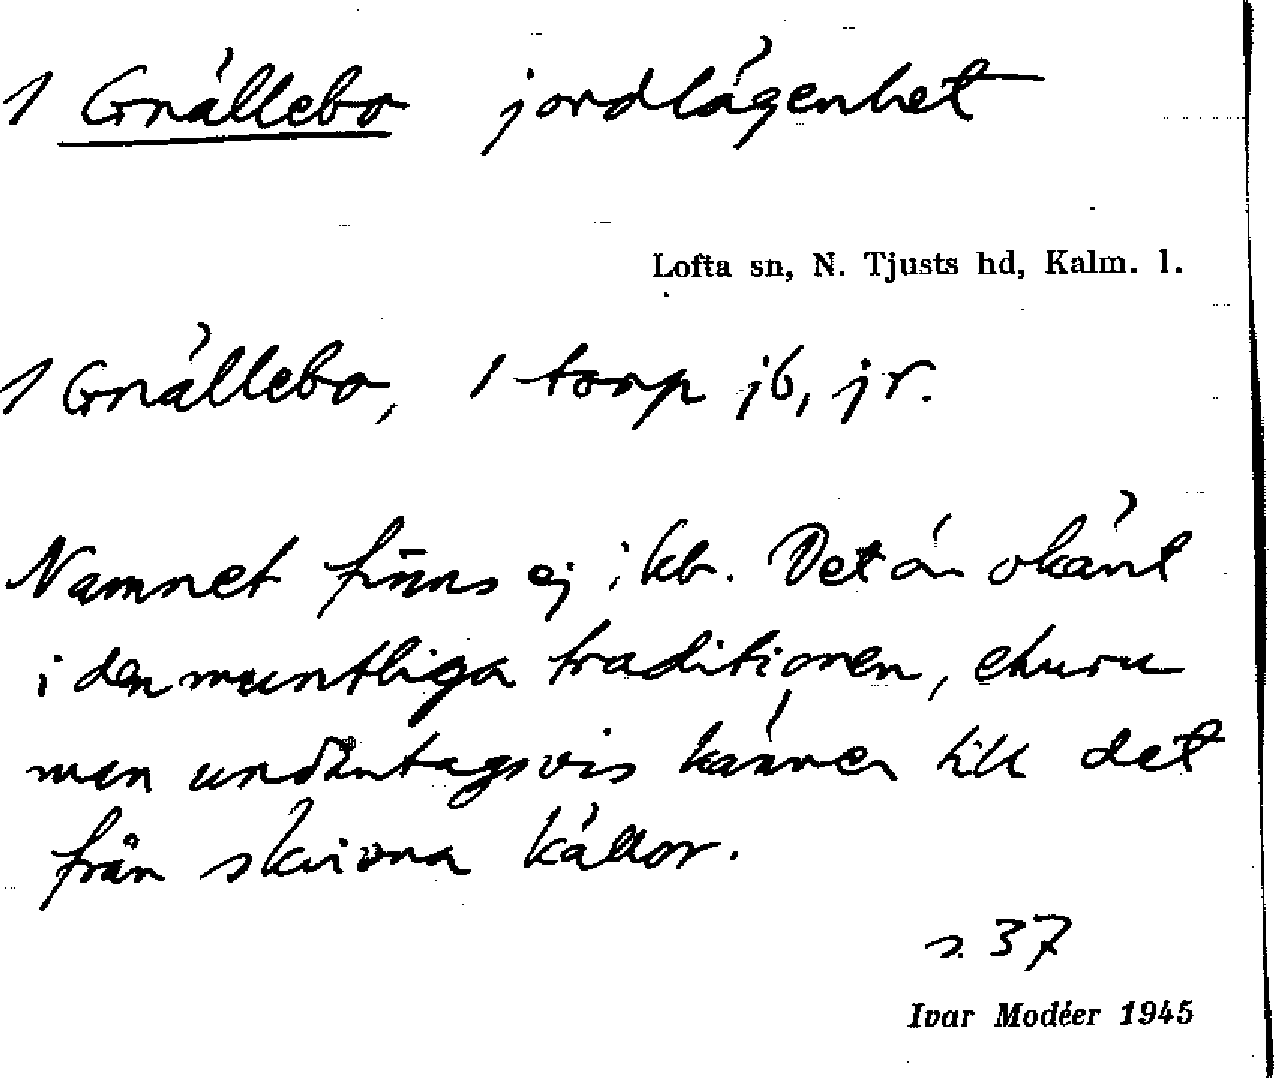 1 Gnällebo jordlägenhet
Lofta sn, N. Tjusts hd, Kalm. l.
1 Gnällebo, 1 torp jb, jr.
Namnet finns ej i kb. Det är okänt
i den muntliga traditionen, ehuru
man undantagsvis känner till det
från skrivna källor.
s. 37
Ivar Modéer 1945